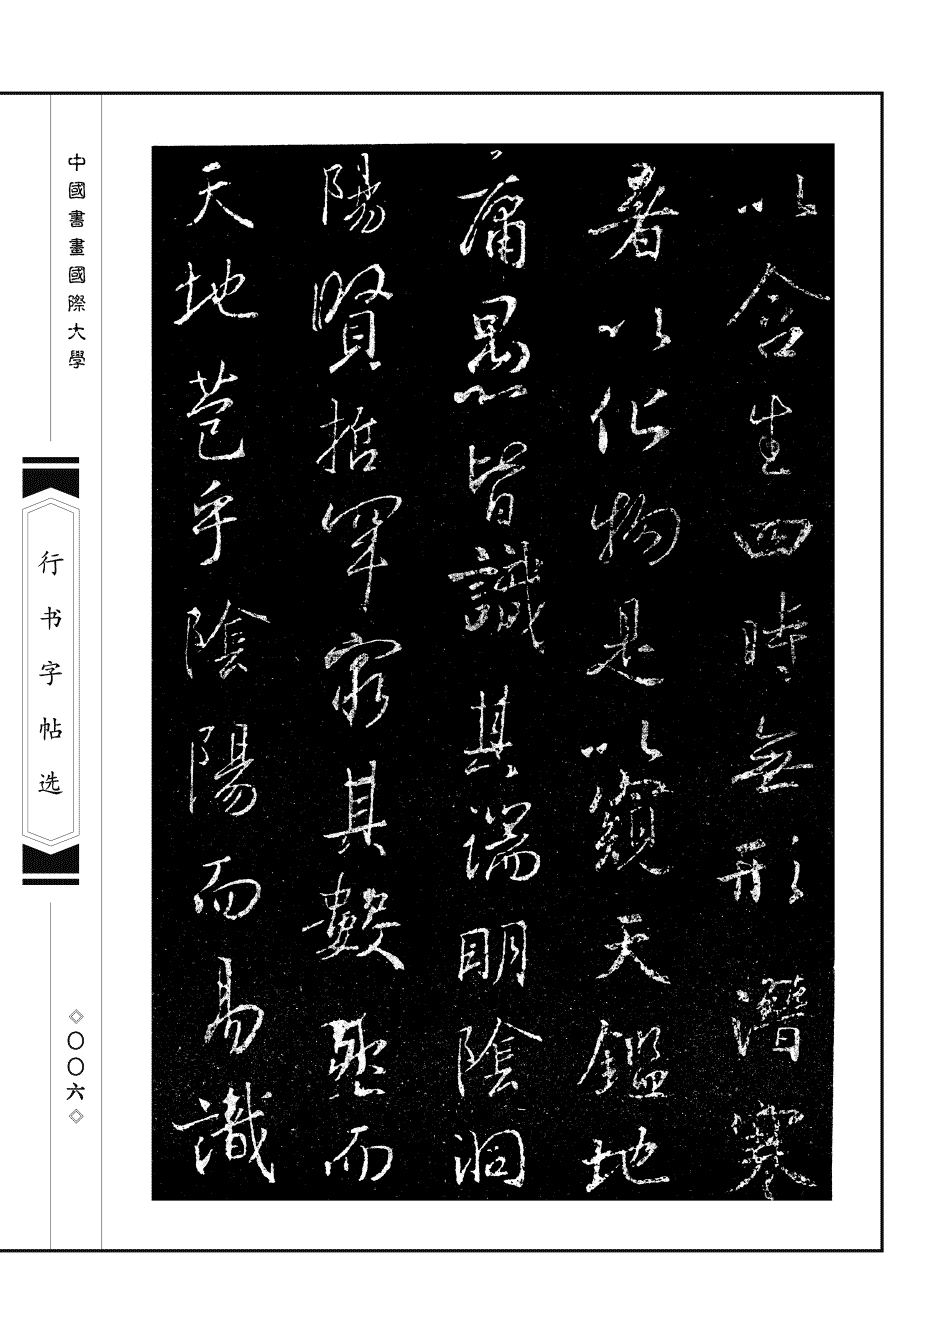 以含生四時無形潛寒
暑以化物是以窺天鑑地
庸愚皆識其端明陰洞
陽賢哲罕窮其數然而
天地苞乎陰陽而易識
中國書畫國際大學
行书字帖选
◇〇〇六◇